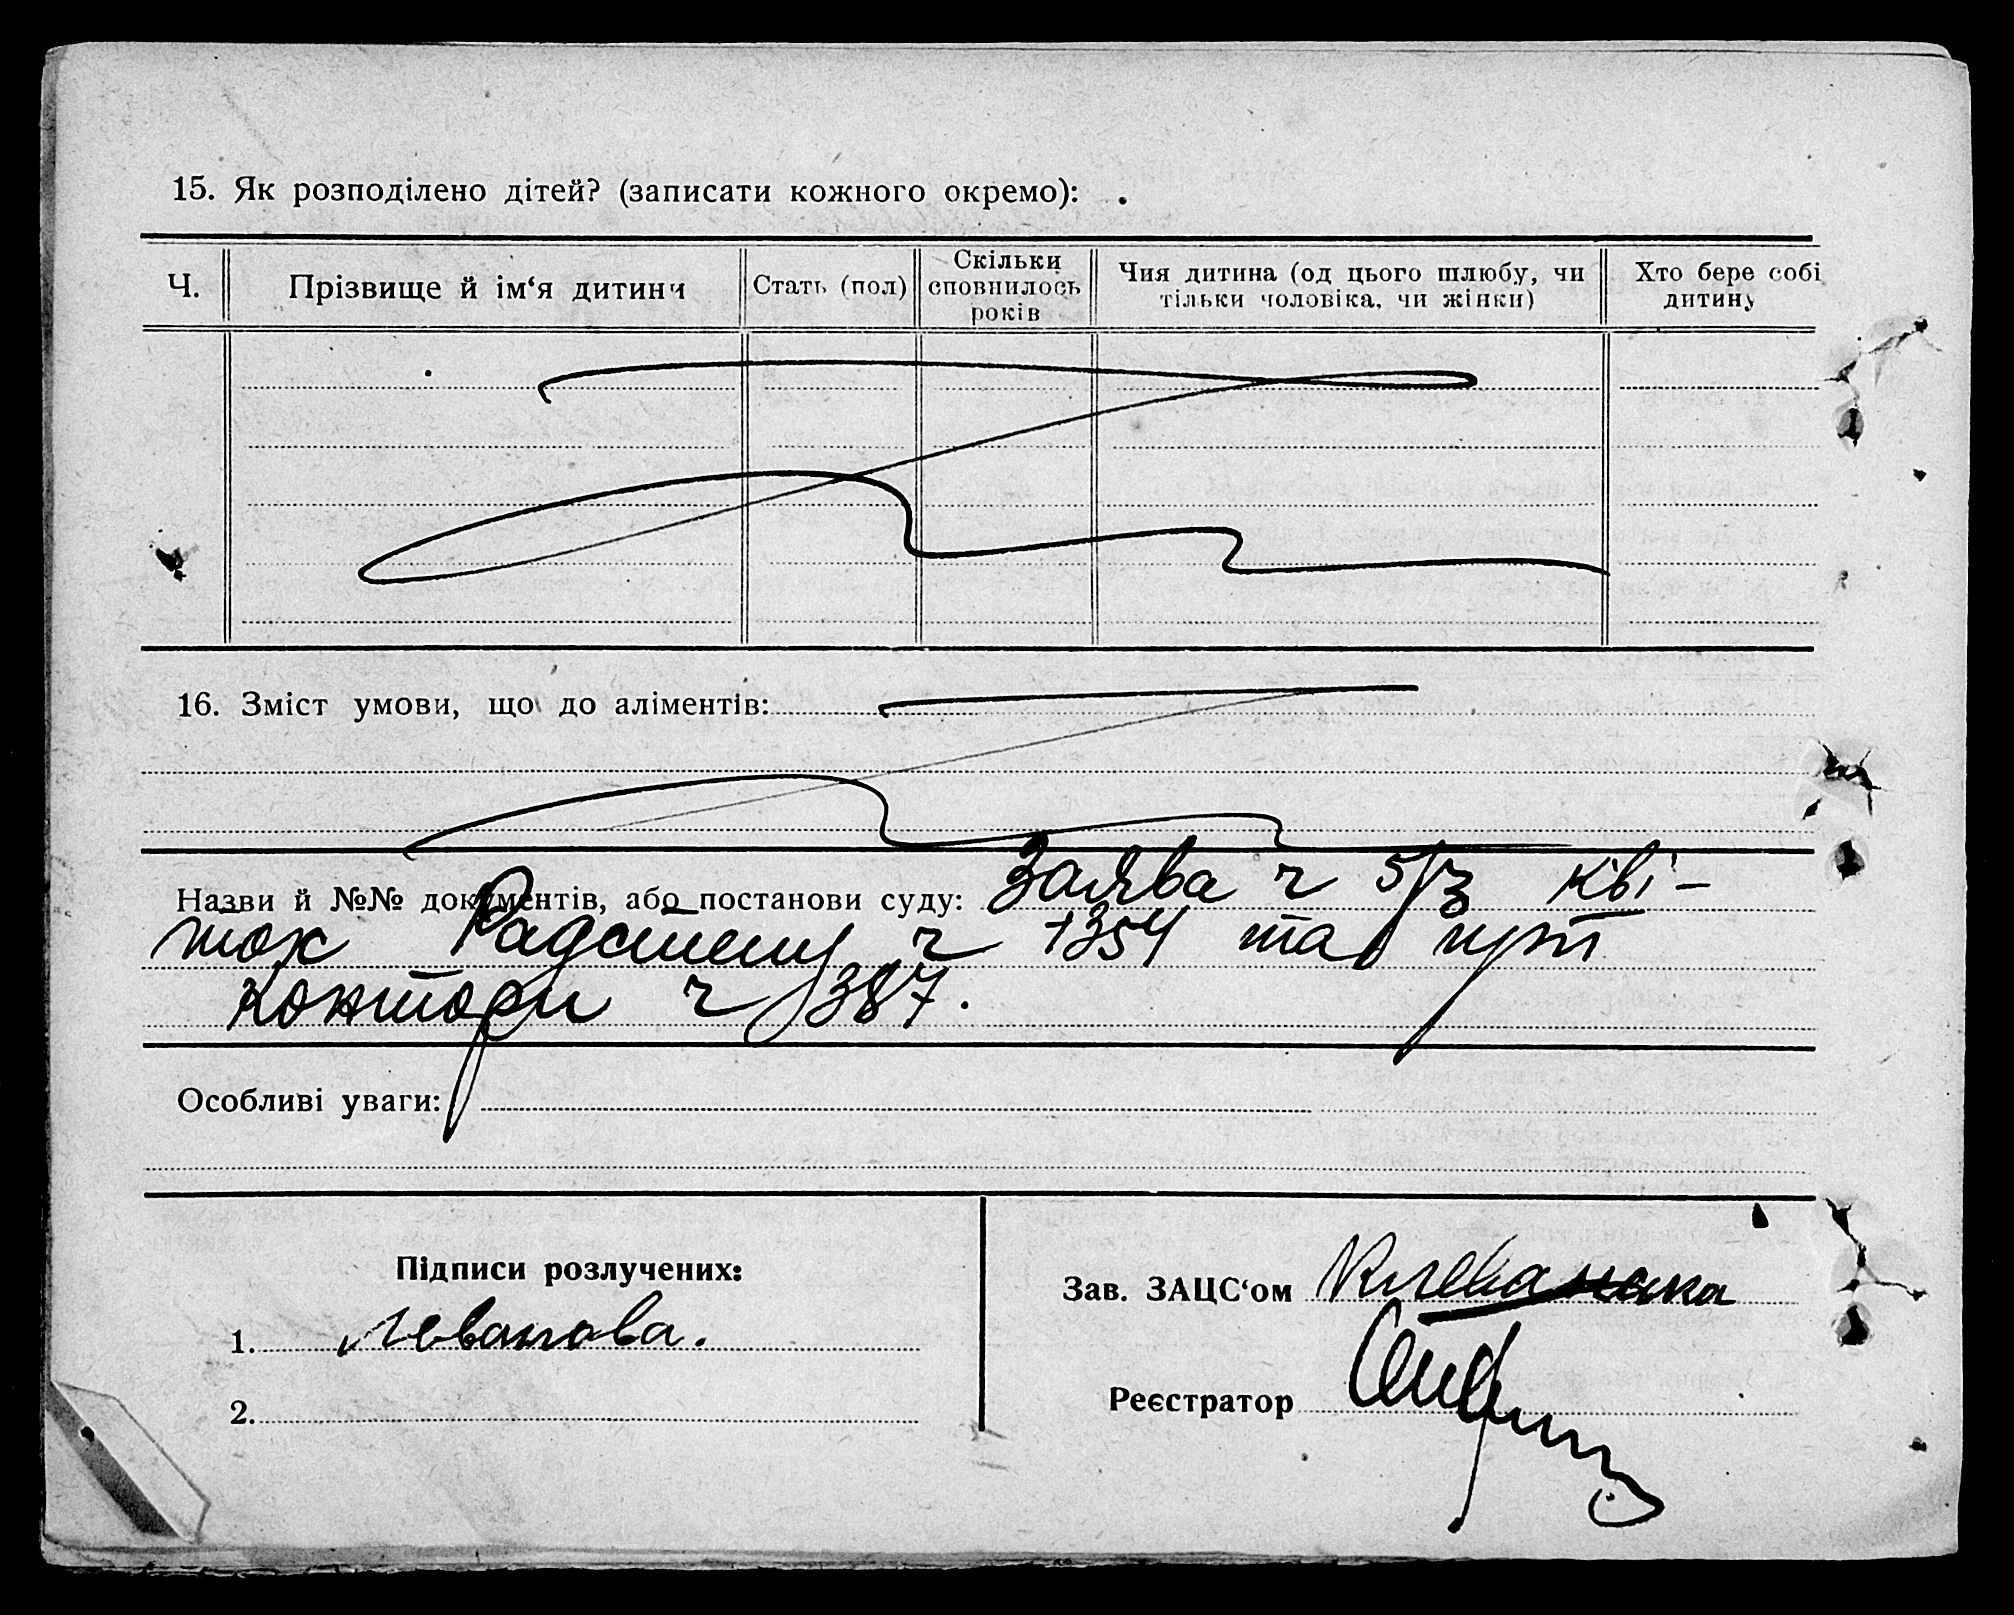 15. Як розподілено дітей? (записати кожного окремо):
Ч.
Прізвище й ім‘я дитини
Стать (пол)
Скільки
сповнилось
років
Чия дитина (од цього шлюбу, чи
тільки чоловіка, чи жінки)
Хто бере собі
дитину
16. Зміст умови, що до аліментів:
Назви й №№ документів, або постанови суду: Заява ч 5/3 кві-
ток ч 1354 та
контори ч 1387.
Особливі уваги:
Підписи розлучених:
1.
2.
Зав. ЗАЦС‘ом
Реєстратор